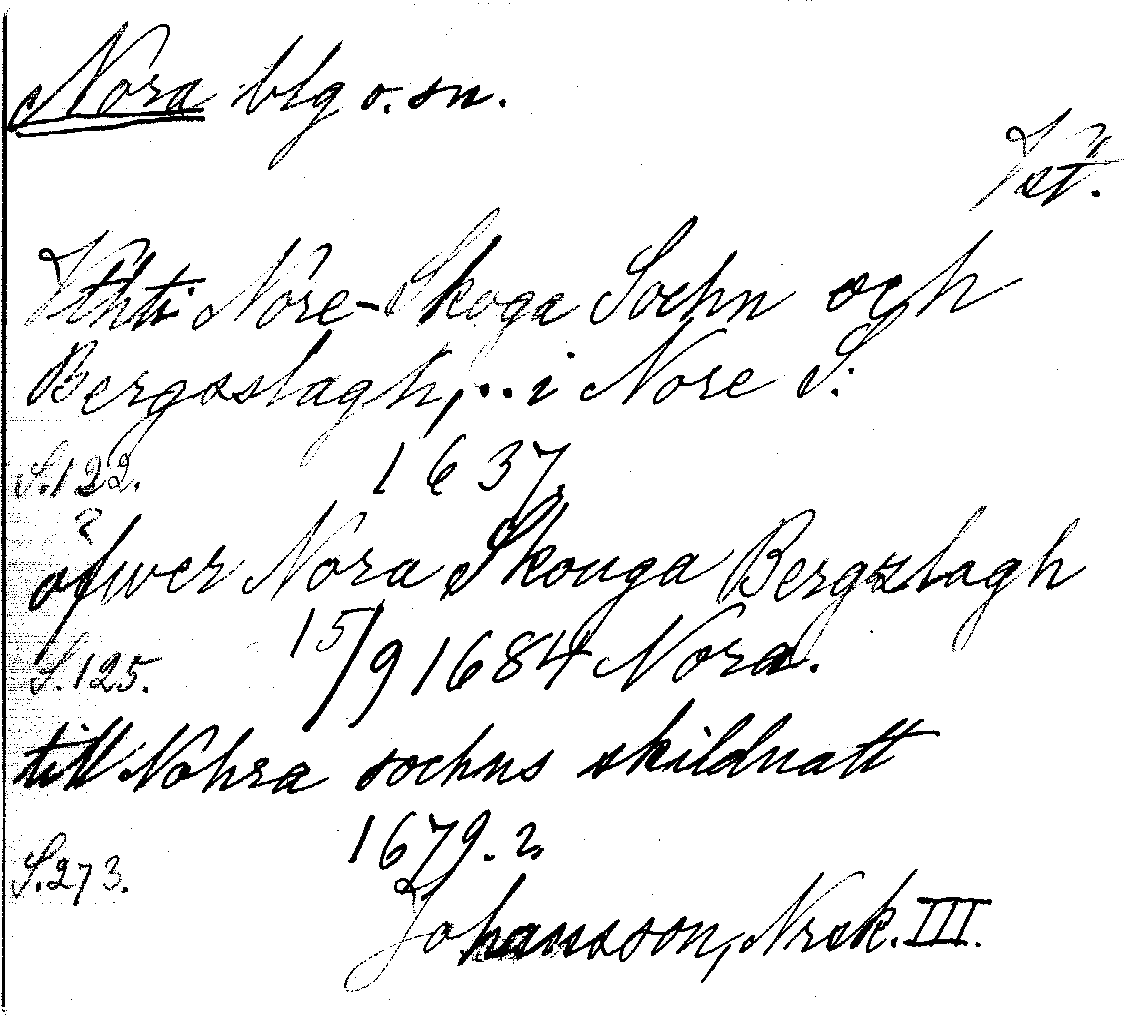 Nora blg o. sn.
Vst.
Vthti Nöre-Skoga Sochn och
Bergsslagh, .. i Nore S:
S. 122. 1637,
öfwer Nora Skouga Bergzlagh
S. 125. 15/9 1684 Nora.
till Nohra sochns skildnatt
1679.
S. 273.
Johansson, Nrsk. III.